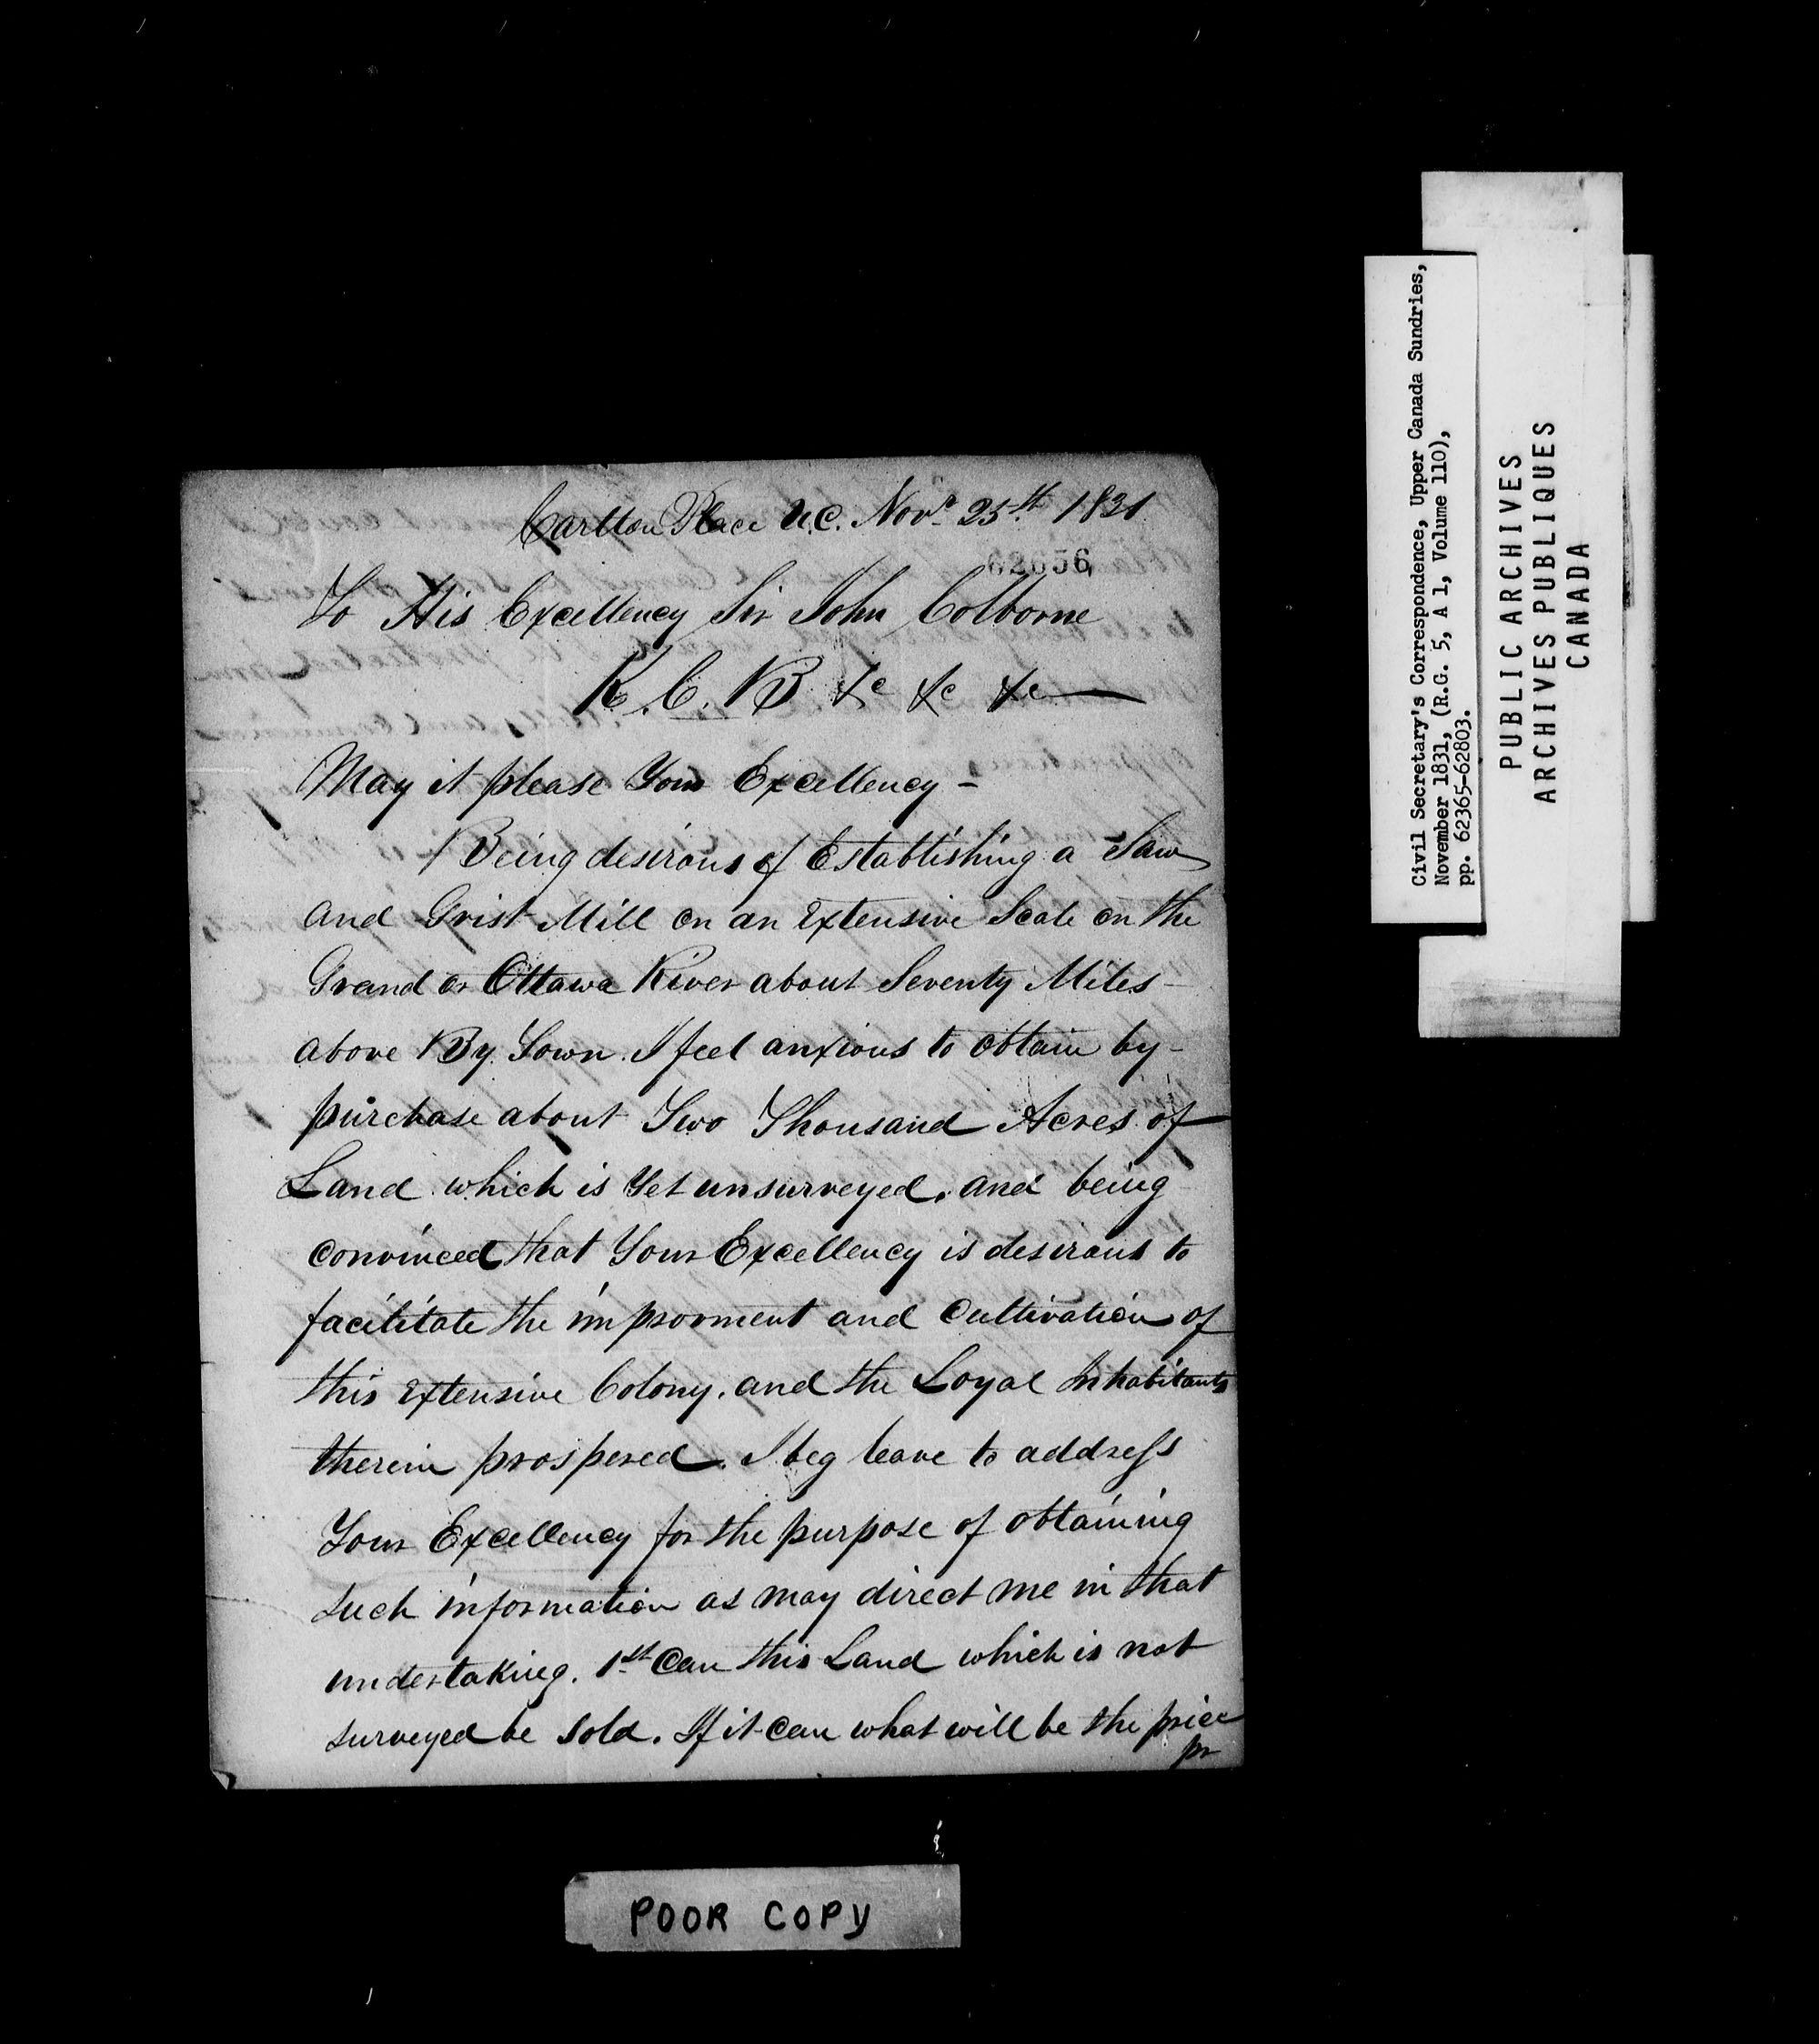 Carlton Place U.C. Novr. 25th. 1831
62656
To His Excellency Sir John Colborne
K.C.B &c &c &c
May it please Your Excellency -
Being desirous of Establishing a Saw
and Grist Mill on an Extensive Scale on the
Grand or Ottawa River about Seventy Miles -
above By Town. I feel anxious to obtain by -
purchase about Two Thousand Acres of
Land which is Yet unsurveyed. and being
convinced that Your Excellency is desirous to
facilitate the improvment and Cultivation of
this Extensive Colony. and the Loyal Inhabitants
therein prospered. I beg leave to address
Your Excellency for the purpose of obtaining
such information as may direct me in that
undertaking. 1st Can this Land which is not
surveyed be Sold. If it Can what will be the price
pr
POOR COPY
Civil Secretary's Correspondence, Upper Canada Sundries,
November 1831, (R.G. 5, A 1, Volume 110),
pp. 62365-62803.
PUBLIC ARCHIVES
ARCHIVES PUBLIQUES
CANADA